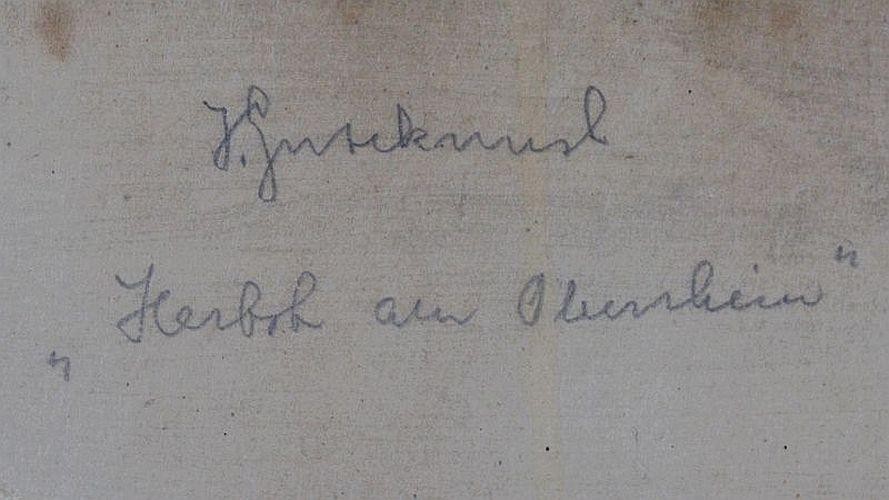 H. Gutekunst
„Herbst am Oberrhein"